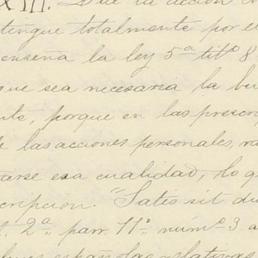 XIII. Que la acción con
tingue totalmente por el
enseña la ley 5ª titº 8
que sea necesaria la bu
te, porque en las prescrip
de las acciones personales, no
arse esa cualidad, lo q
cripcion. "Satis sit di
t. 2ª parr. 11º númº 3 a
españolas